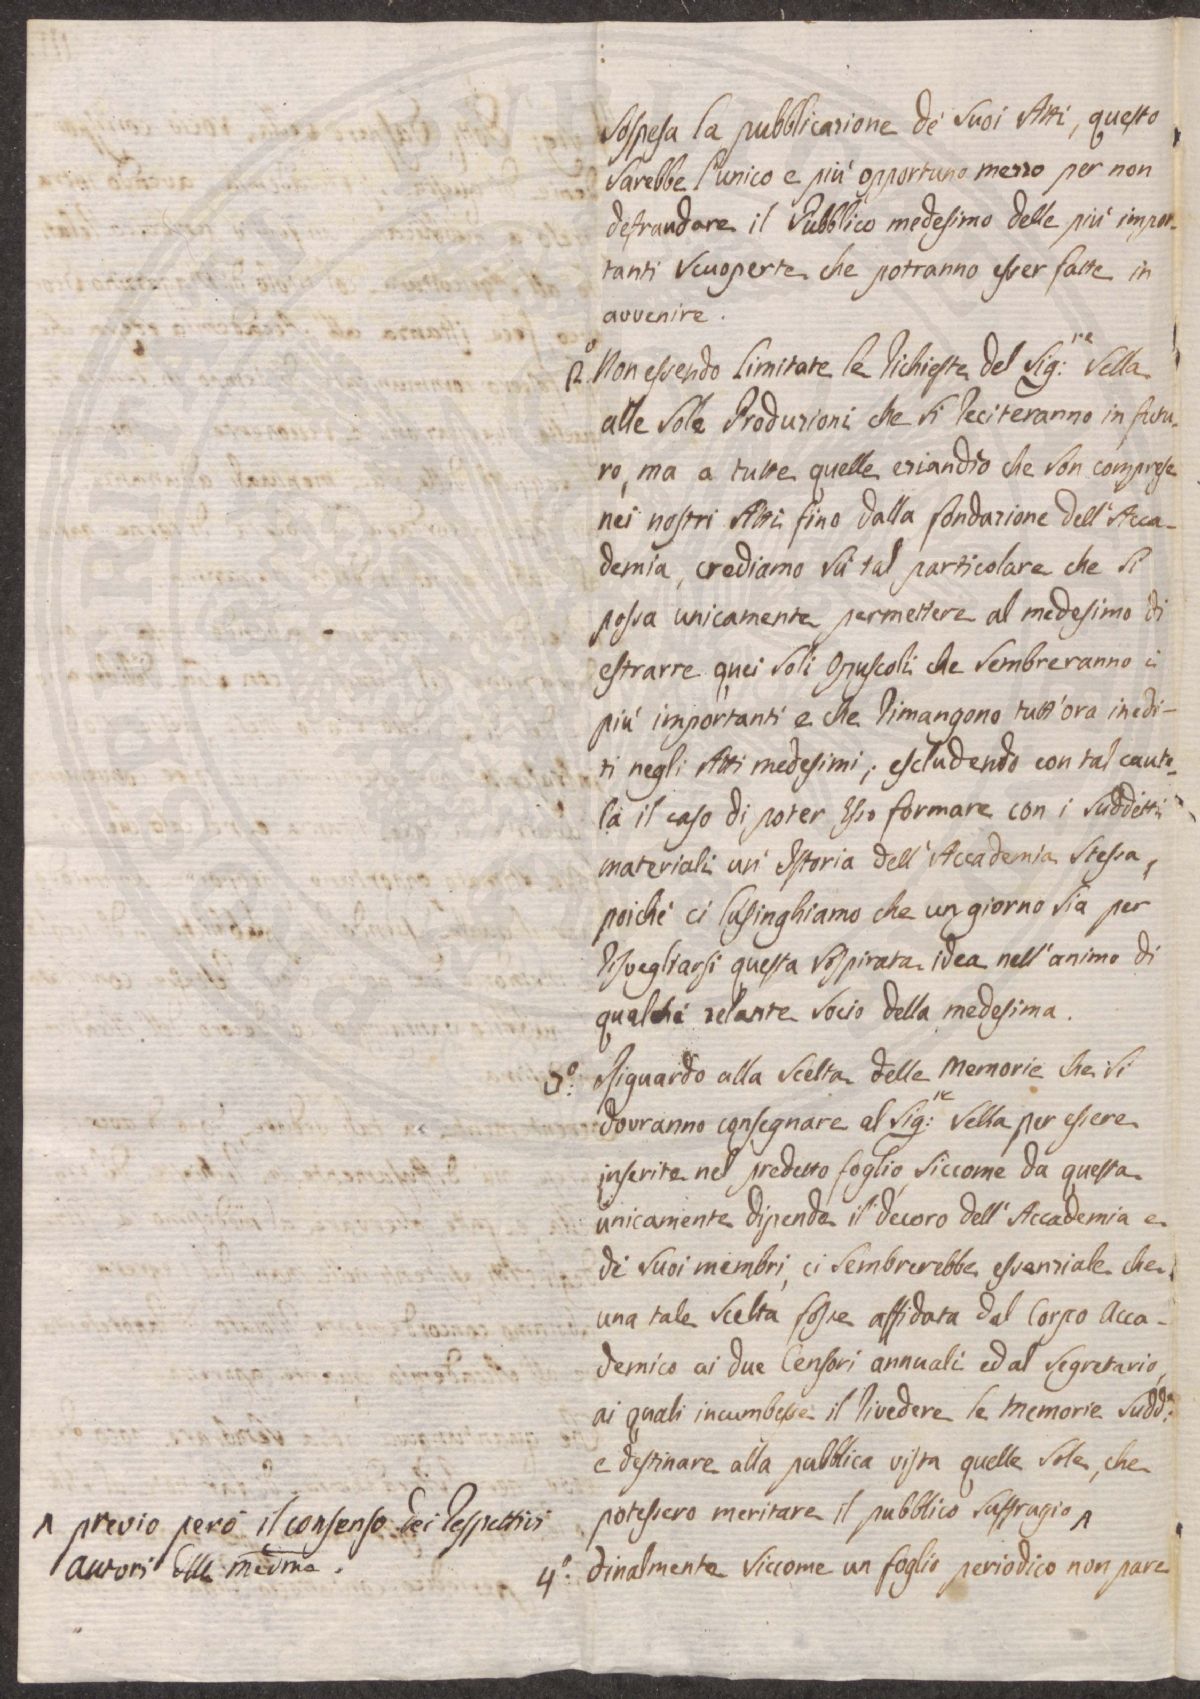 sospesa la pubblicazione de' suoi Atti, questo
sarebbe l'unico e più opportuno mezzo per non
defraudare il Pubblico medesimo delle più impor-
tanti scuoperte che potranno esser fatte in
avvenire.
2.° Non essendo limitate le richieste del Sig:re Sella
alle sole Produzioni che si reciteranno in futu-
ro, ma a tutte quelle eziandio che son comprese
nei nostri Atti fino dalla fondazione dell'Acca-
demia, crediamo su tal particolare che si
possa unicamente permettere al medesimo di
estrarre quei soli Opuscoli che sembreranno i
più importanti e che rimangono tutt'ora inedi-
ti negli Atti medesimi; escludendo con tal caute-
la il caso di poter Esso formare con i suddetti
materiali un' Istoria dell'Accademia stessa,
poiché ci lusinghiamo che un giorno sia per
risvegliarsi questa sospirata idea nell'animo di
qualche zelante socio della medesima.
3.° Riguardo alla scelta delle Memorie che si
dovranno consegnare al Sig:re Sella per essere
inserite nel predetto foglio, siccome da questa
unicamente dipende il decoro dell'Accademia e
de' suoi membri, ci sembrerebbe essenziale che
una tale scelta fosse affidata dal Corpo Acca-
demico ai due Censori annuali ed al Segretario,
ai quali incumbesse il rivedere le Memorie sudd.e
e destinare alla pubblica vista quelle sole, che
potessero meritare il pubblico suffragio ^
^ previo però il consenso dei respettivi
autori delle medme.
4.° Finalmente siccome un foglio periodico non pare